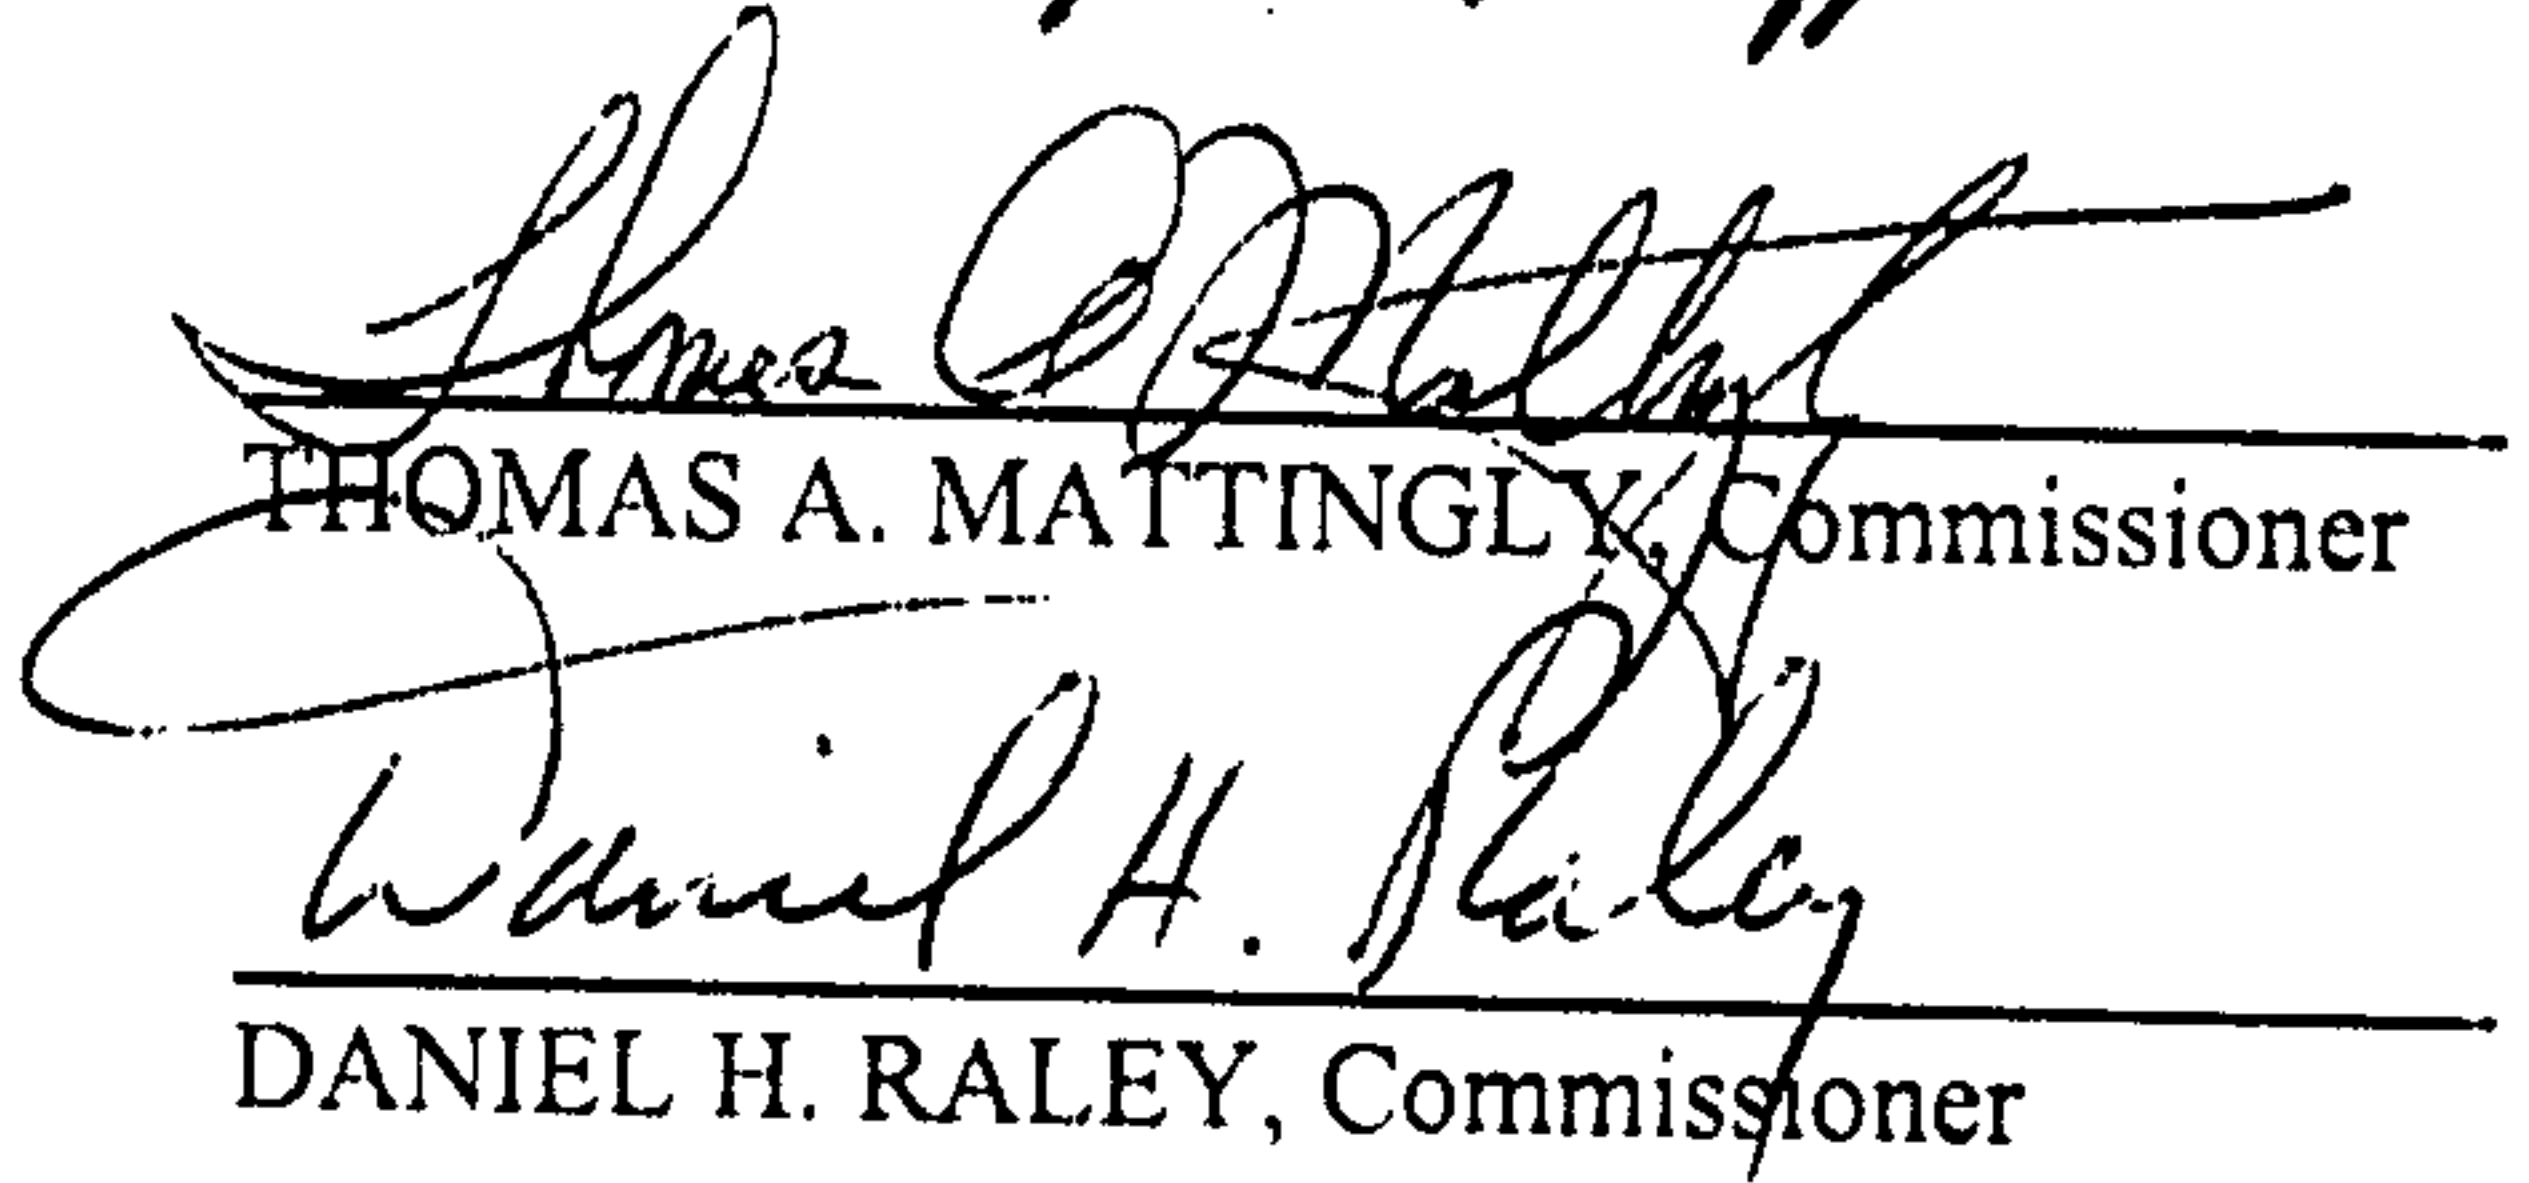 Thomas A Mattingly
THOMAS A. MATTINGLY, Commissioner
Daniel H. Raley
DANIEL H. RALEY, Commissioner